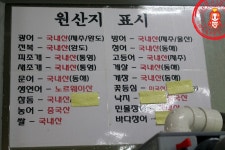 원산지 표시
광어 - 국내산(제주/완도) 방어 - 국내산(제주/울산)
전복 - 국내산(완도)
피조개 - 국내산(통영) 고등어 - 국내산(제주)
새조개 - 국내산(통영) 개살 - 국내산(동해)
문어 - 국내산(동해) 게장 - 국내산(동해)
생연어 - 노르웨이산
참돔 - 국내산 낙지 -
농어 - 중국산 민물장
쌀 - 국내산 바다장어 - 국내산